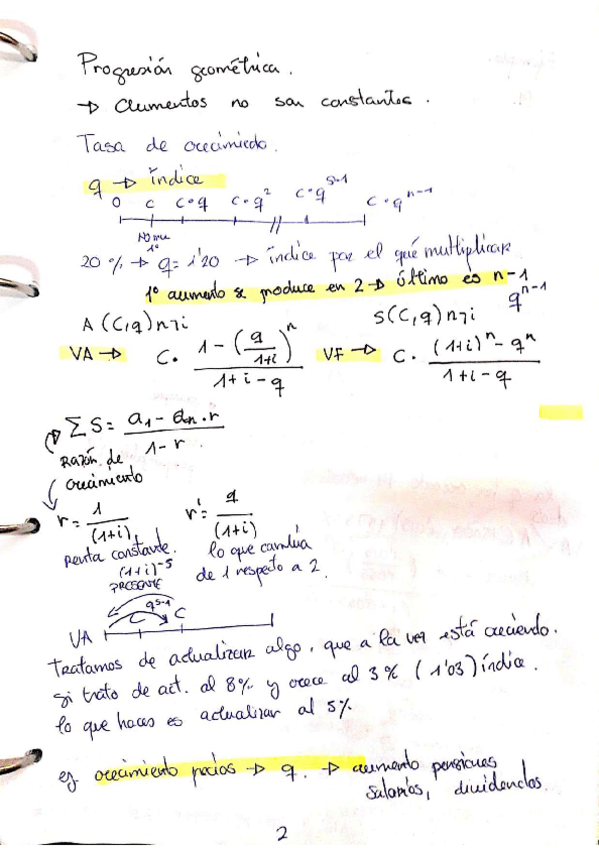 Progresión geométrica.
→ Aumentos no son constantes.
Tasa de crecimiento.
q → índice
0 c c·q c·q² c·q^(s-1) c·q^(n-1)
1º
20% → q = 1'20 → índice por el que multiplicar
1º aumento se produce en 2 → último es n-1
q^(n-1)
A (C,q)n¬i S(C,q)n¬i
VA → C · (1 - (q/(1+i))^n) / (1+i-q) VF → C · ((1+i)^n - q^n) / (1+i-q)
ΣS = (a₁ - an · r) / (1 - r)
Razón de
crecimiento
r = 1/(1+i) r' = q/(1+i)
Renta constante. lo que cambia
de 1 respecto a 2.
(1+i)^-s
PRESENTE
q^(s-1)
C C
VA
Tratamos de actualizar algo, que a la vez está creciendo.
si trato de act. al 8% y crece al 3% (1'03) índice.
lo que haces es actualizar al 5%
ej crecimiento precios → q. → aumento pensiones
salarios, dividendos.
2